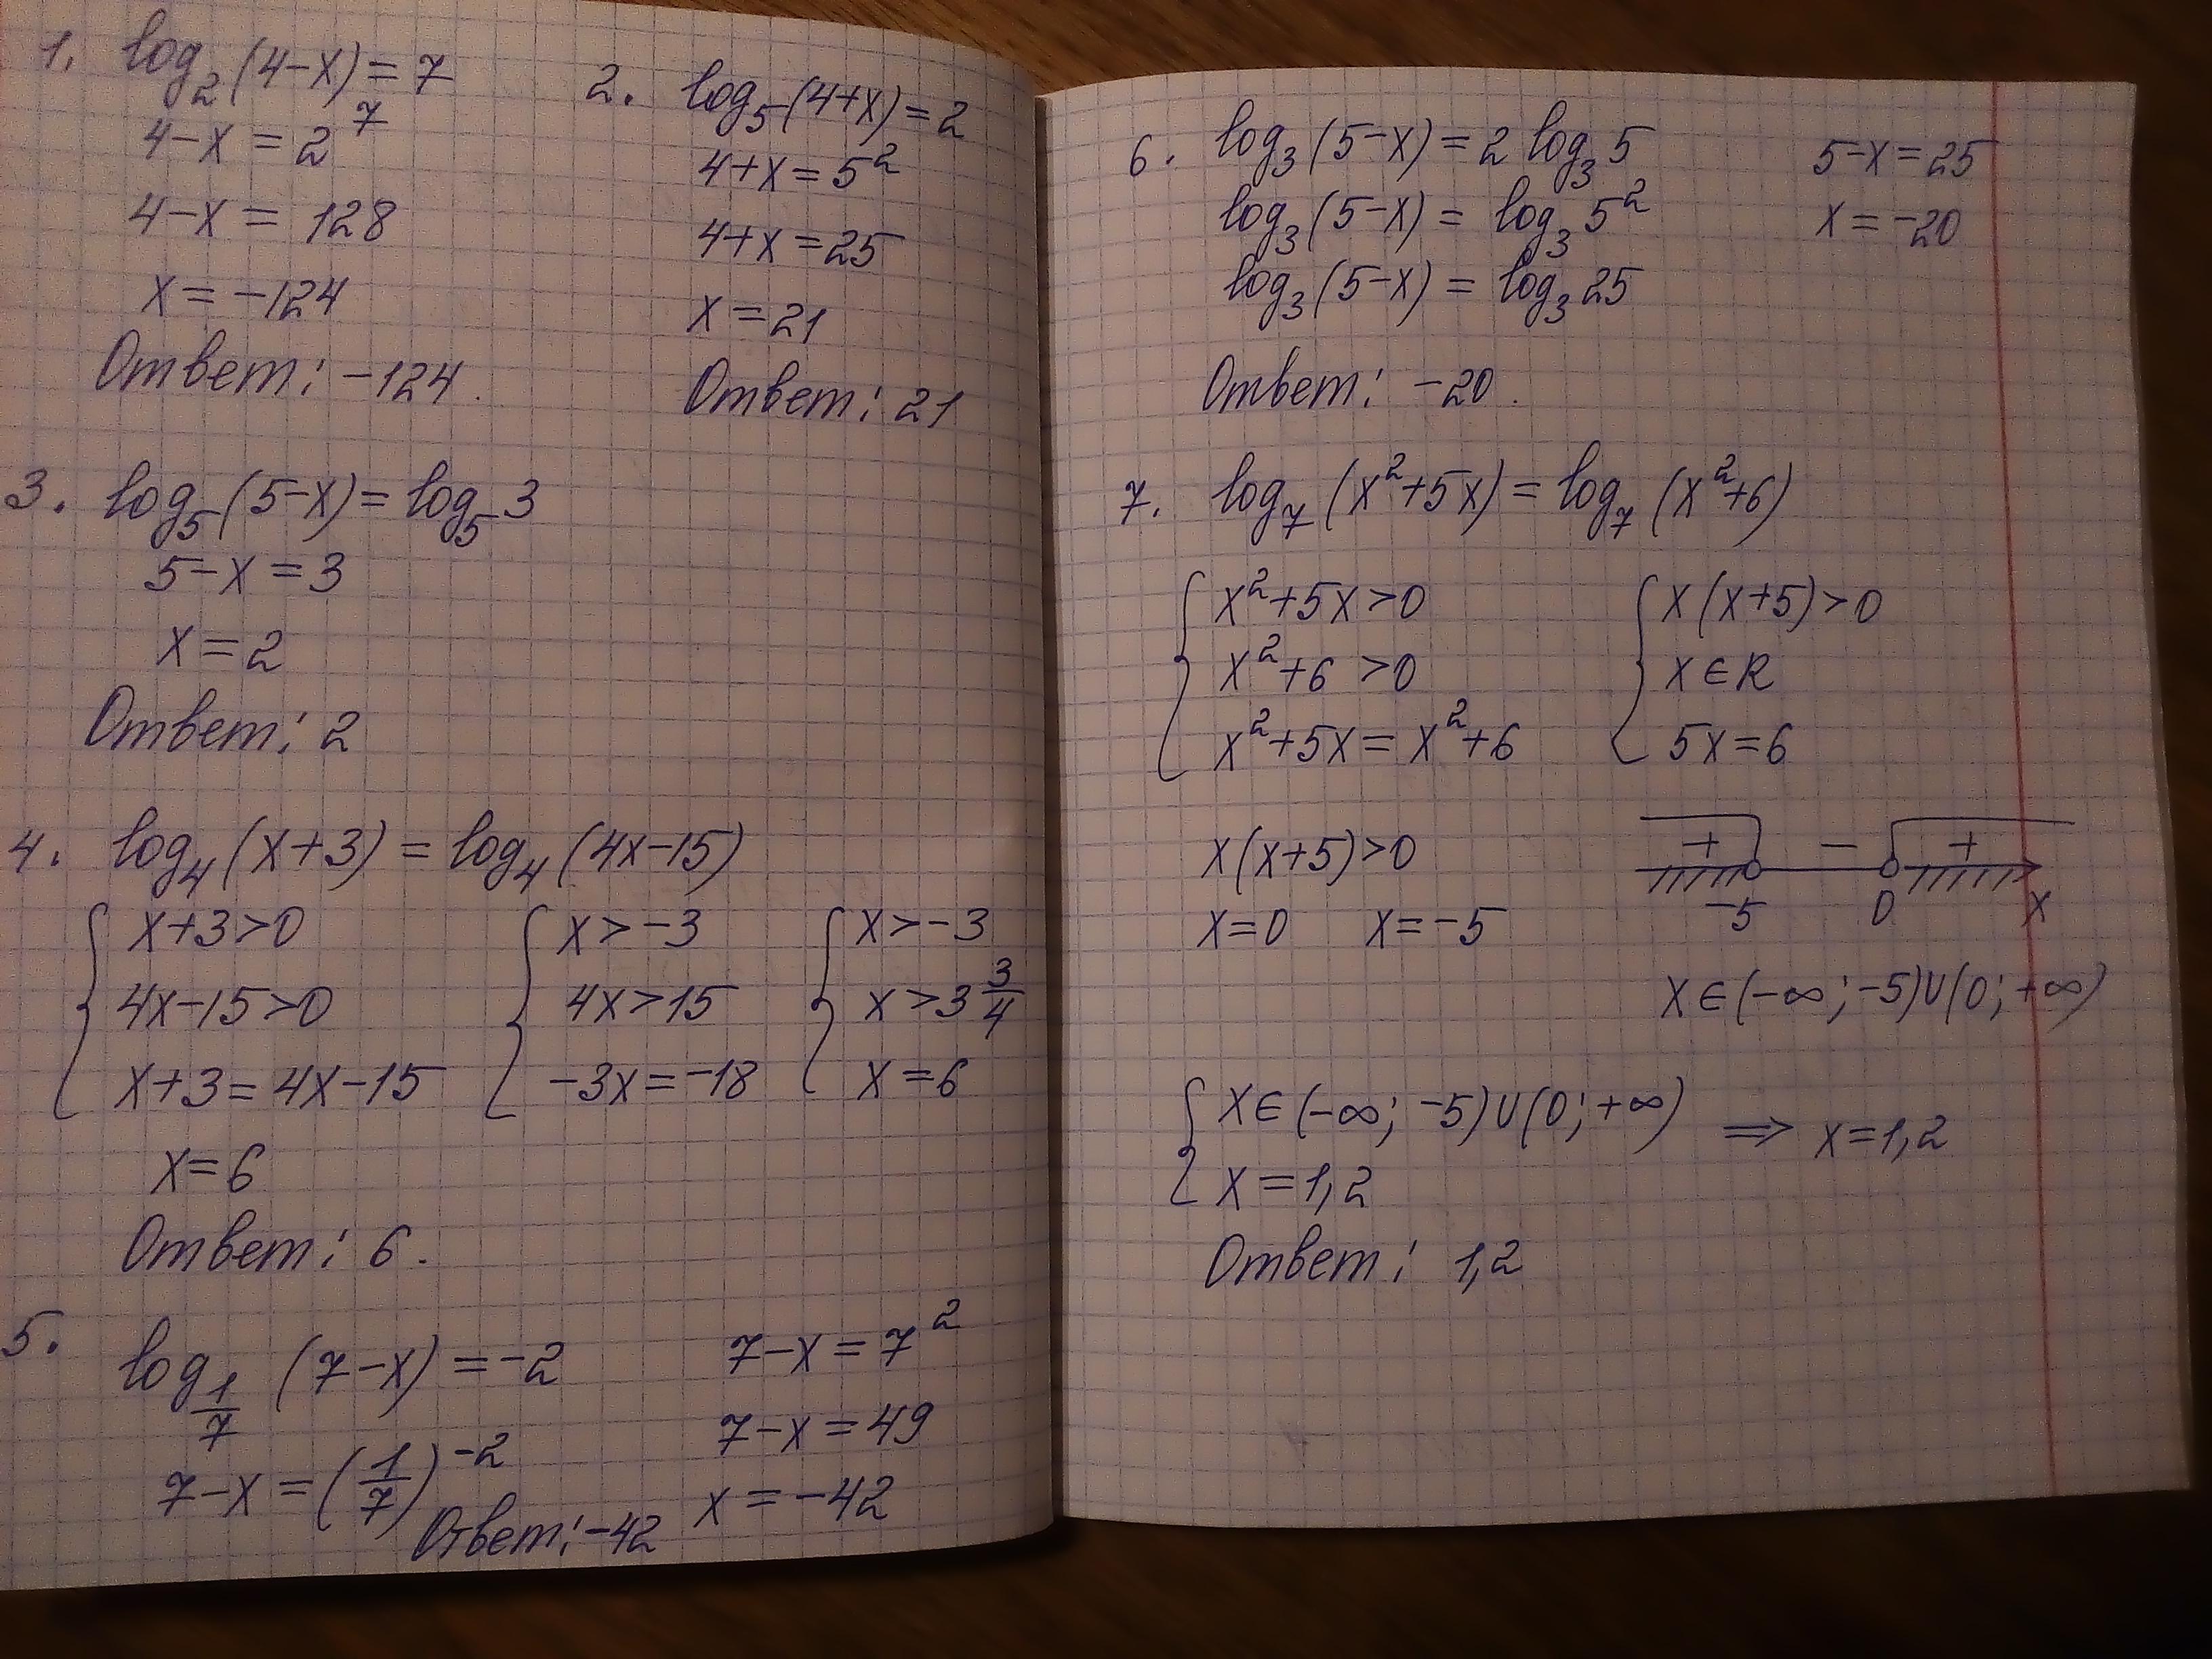 1. log₂(4-x)=7
4-x=2⁷
4-x=128
x=-124
Ответ: -124.
2. log₅(4+x)=2
4+x=5²
4+x=25
x=21
Ответ: 21
3. log₅(5-x)=log₅3
5-x=3
x=2
Ответ: 2
4. log₄(x+3)=log₄(4x-15)
{ x+3>0
4x-15>0
x+3=4x-15
{ x>-3
4x>15
-3x=-18
{ x>-3
x>3 3/4
x=6
x=6
Ответ: 6.
5. log_{1/7}(7-x)=-2
7-x=(1/7)⁻²
7-x=7²
7-x=49
x=-42
Ответ: -42
6. log₃(5-x)=2 log₃5
log₃(5-x)=log₃5²
log₃(5-x)=log₃25
5-x=25
x=-20
Ответ: -20.
7. log₇(x²+5x)=log₇(x²+6)
{ x²+5x>0
x²+6>0
x²+5x=x²+6
{ x(x+5)>0
x∈R
5x=6
x(x+5)>0
x=0 x=-5
+ - +
-5 0 x
x∈(-∞;-5)∪(0;+∞)
{ x∈(-∞;-5)∪(0;+∞) ⇒ x=1,2
x=1,2
Ответ: 1,2